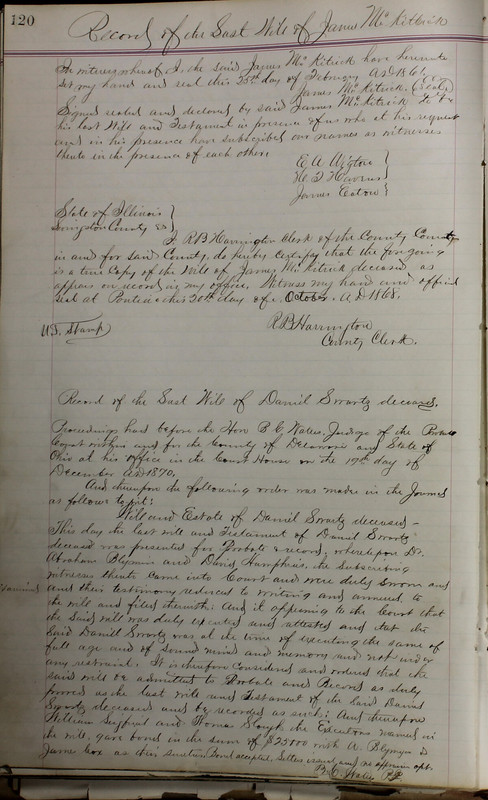 120
Record of the Last Will of James McKitrick
In witness whereof I, the said James McKitrick have hereunto
set my hand and seal this 25th day of February A.D. 186
James McKitrick (Seal)
Signed sealed and declared by said James McKitrick to be
his last Will and Testament in presence of us who at his request
and in his presence have subscribed our names as witnesses
thereto in the presence of each other.
James Eaton
State of Illinois
Livingston County SS
I RB Harrington Clerk of the County Court
in and for said County, do hereby certify that the foregoing
is a true Copy of the Will of James McKitrick deceased as
appears on record in my office. Witness my hand and official
seal at Pontiac this 20th day of October A.D. 1868.
U.S. Stamp
RB Harrington
County Clerk.
Record of the Last Will of Daniel Swartz deceased.
Proceedings had before the Hon B.C. Waters Judge of the Probate
Court within and for the County of Delaware and State of
Ohio at his office in the Court House on the 17th day of
December A.D. 1870.
And thereupon the following order was made in the Journal
as follows to wit:
Will and Estate of Daniel Swartz deceased -
This day the last will and Testament of Daniel Swartz
deceased was presented for Probate & record, whereupon Dr.
Abraham Blymyer and David Humphries the subscribing
witnesses thereto came into Court and were duly sworn and
examined
and their testimony reduced to writing and annexed to
the will and filed therewith. And it appearing to the Court that
the said will was duly executed and attested and that the
said Daniel Swartz was at the time of executing the same of
full age and of sound mind and memory and not under
any restraint. It is therefore considered and ordered that the
said will be admitted to Probate and Record as duly
proved as the last will and Testament of the said Daniel
Swartz deceased and be recorded as such: And therefore
William Siegfried and Thomas Slough the Executors named in
the will, gave bond in the sum of $25000 with A. Blymyer &
James Cox as their sureties. Bond accepted, Letters issued, and
B.C. Waters P.J.